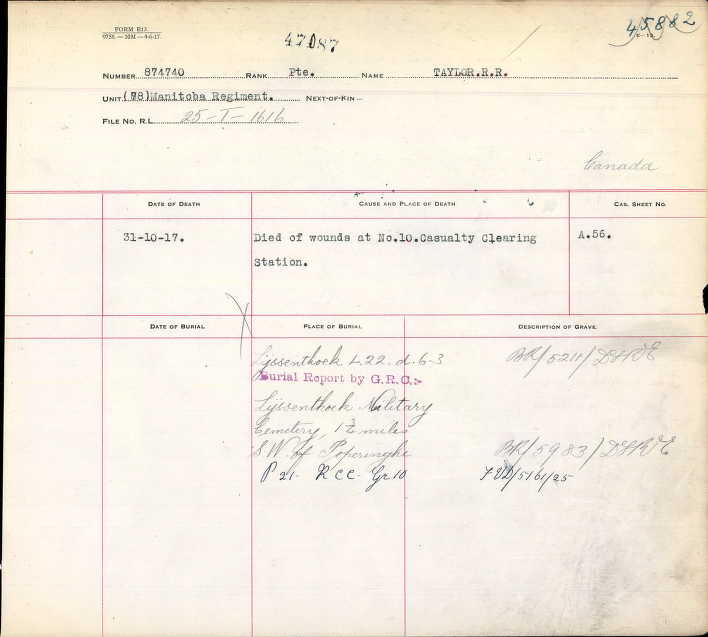 FORM R13.
9756.—10M—4-6-17.
47087
45882
NUMBER 874740 RANK Pte. NAME TAYLOR.R.R.
UNIT (78)Manitoba Regiment. NEXT-OF-KIN
FILE NO. R.L. 25-T-1616
Canada
DATE OF DEATH CAUSE AND PLACE OF DEATH CAS. SHEET NO.
31-10-17. Died of wounds at No.10.Casualty Clearing A.56.
Station.
DATE OF BURIAL PLACE OF BURIAL DESCRIPTION OF GRAVE
Lijssenthoek L.22.d.6-3 BR/5211/DGR&E
Burial Report by G.R.C.
Lijssenthoek Military
Cemetery, 1¾ miles
S.W. of Poperinghe BR/5983/DGR&E
P 21- R C C- Gr 10 /5161/25